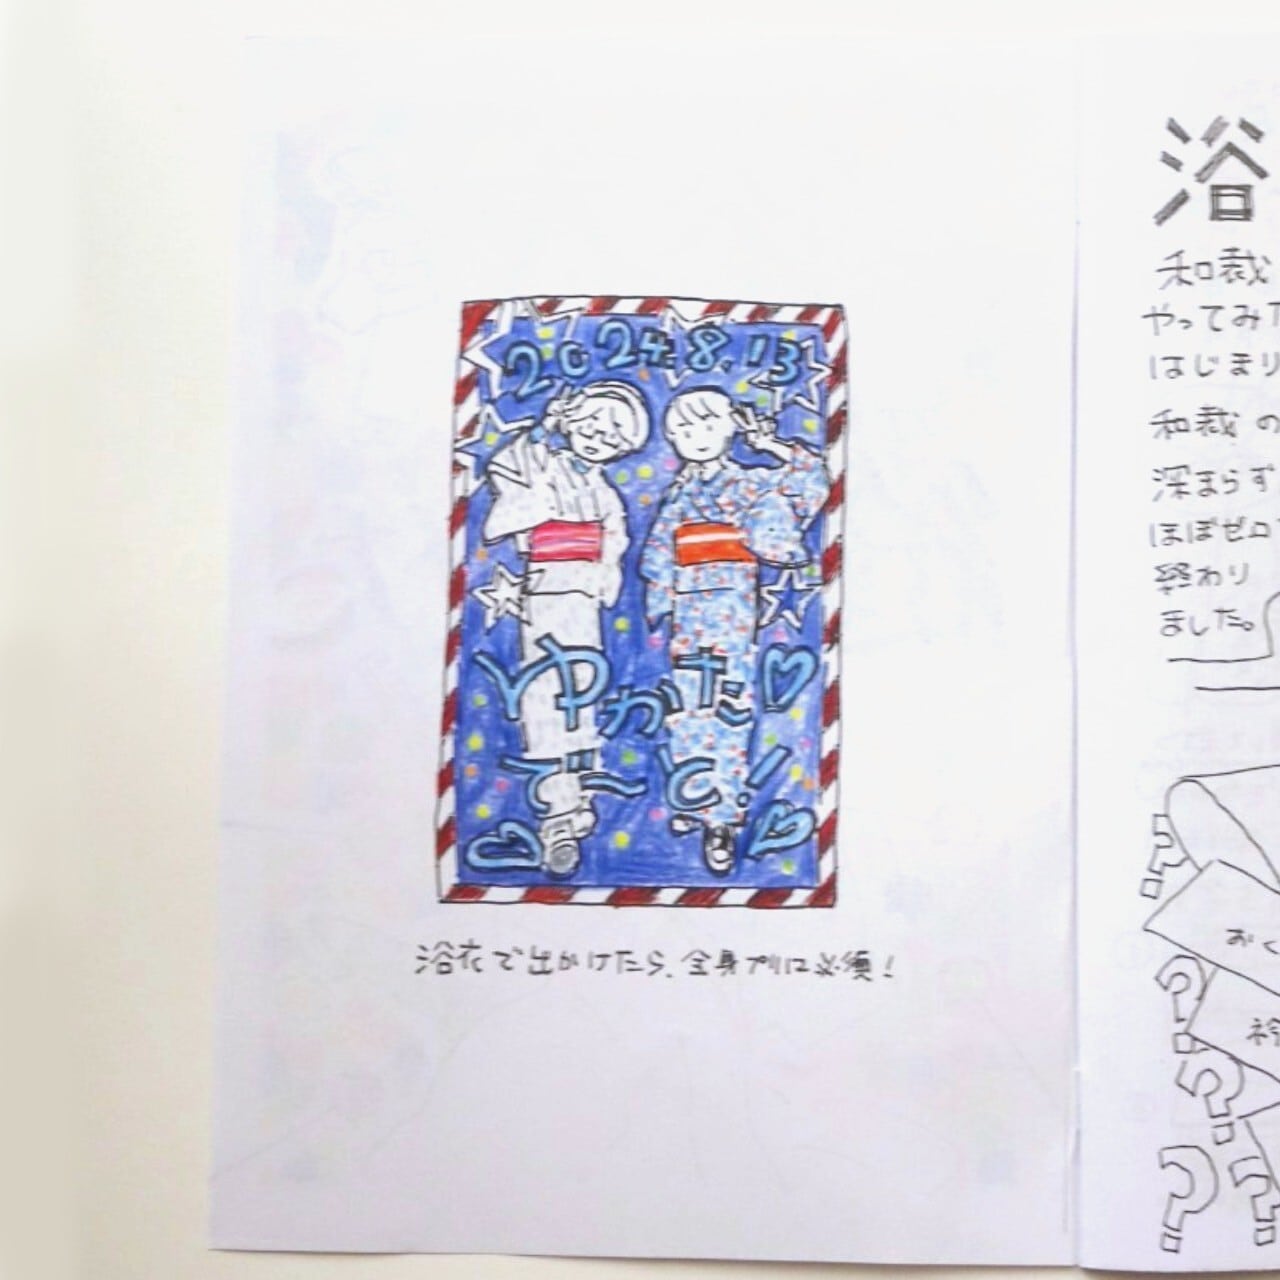 2024.8.13
ゆかた♡
でーと!
浴衣で出かけたら、全身プリは必須!
浴
和裁
やってみた
はじまり
和裁の
深まらず
ほぼゼロ
終わり
ました。
おく
衿
?
?
?
?
?